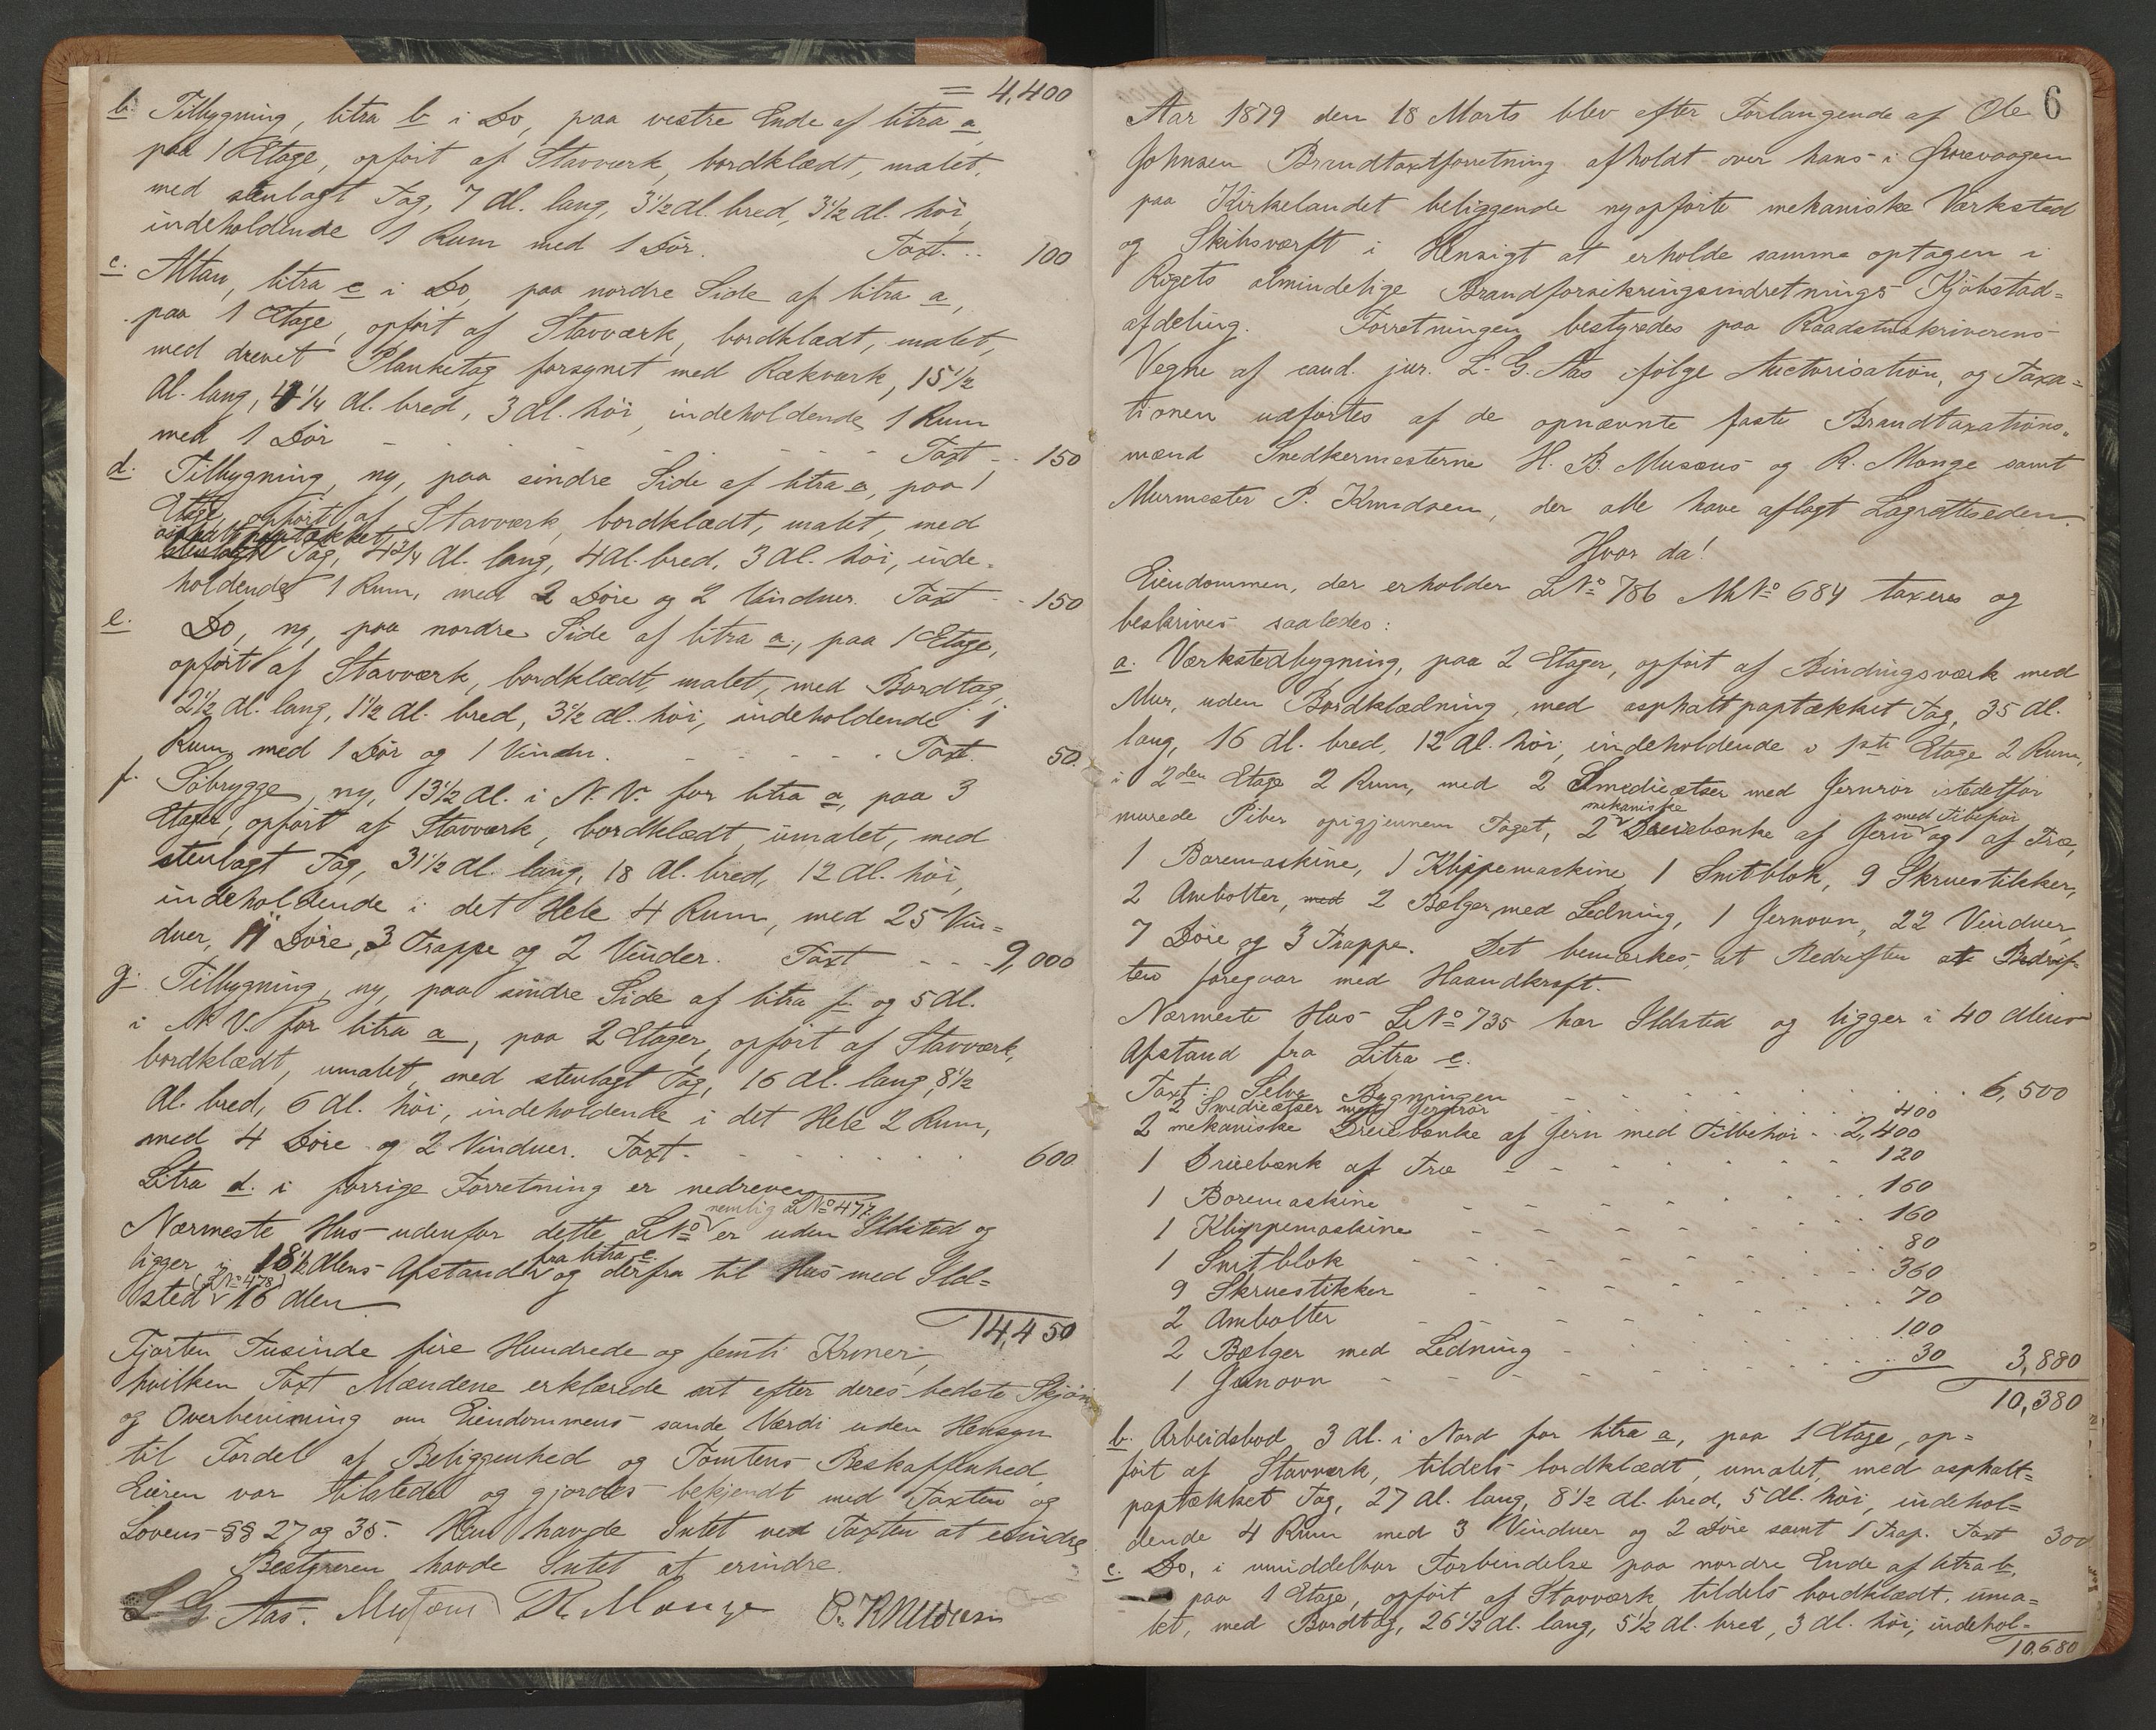 = 4,400
b. Tilbygning, litra b i Do, paa vestre Ende af litra a
paa 1 Etage, opført af Stavværk, bordklædt, malet,
med stenlagt Tag, 7 Al. lang, 3 1/2 Al. bred, 3 1/2 Al. høi,
indeholdende 1 Rum med 1 Dør. Taxt. .. 100
c. Altan, litra c i Do, paa nordre Side af litra a,
paa 1 Etage, opført af Stavværk, bordklædt, malet,
med drevet Planketag forsynet med Rækværk, 15 1/2
Al. lang, 4 1/4 Al. bred, 3 Al. høi, indeholdende 1 Rum
med 1 Dør - - - - - - Taxt - . 150
d. Tilbygning, ny, paa søndre Side af litra a, paa 1
Etage, opført af Stavværk, bordklædt, malet, med
asphaltpaptækket
stenlagt Tag, 4 3/4 Al. lang, 4 Al. bred, 3 Al. høi, inde-
holdende 1 Rum, med 2 Døre og 2 Vinduer. Taxt - . 150
e. Do, ny, paa nordre Side af litra a., paa 1 Etage,
opført af Stavværk, bordklædt, malet, med Bordtag,
2 1/2 Al. lang, 1 1/2 Al. bred, 3 1/2 Al. høi, indeholdende 1
Rum, med 1 Dør og 1 Vindu. - - - - - . Taxt. 50.
f. Søbrygge, ny, 13 1/2 Al. i N. V. for litra a, paa 3
Etager, opført af Stavværk, bordklædt umalet, med
stenlagt Tag, 31 1/2 Al. lang, 18 Al. bred, 12 Al. høi,
indeholdende i det Hele 4 Rum, med 25 Vin=
duer, 11 Døre, 3 Trappe og 2 Vinder. Taxt - - - 9,000
g. Tilbygning, ny, paa søndre Side af litra f og 5 Al.
i N. V. for litra a, paa 2 Etager, opført af Stavværk,
bordklædt, umalet, med stenlagt Tag, 16 Al. lang, 8 1/2
Al. bred, 6 Al. høi, indeholdende i det Hele 2 Rum,
med 4 Døre og 2 Vinduer. Taxt. - - - - - 600
Litra d. i forrige Forretning er nedreven
nemlig LNo 477.
Nærmeste Hus udenfor dette LNo er uden Ildsted og
fra litra e.
ligger i 18 1/2 Alens Afstand og derfra til Hus med Ild=
(LNo 478)
sted 16 Alen
14,450
Fjorten Tusinde fire Hundrede og femti Kroner,
hvilken Taxt Mændene erklærede sat efter deres bedste Skjøn
og Overbevisning om Eiendommens sande Værdi uden Hensyn
til Fordel af Beliggenhed og Tomtens Beskaffenhed.
Eieren var tilstede og gjordes bekjendt med Taxten og
Lovens §§ 27 og 35. Han havde Intet ved Taxten at erindre
Bestyreren havde Intet at erindre.
L G Aas. Musæus R. Monge P. Knudsen
6
Aar 1879 den 18 Marts blev efter Forlangende af Ole
Johnsen Brandtaxtforretning afholdt over hans i
paa Kirkelandet beliggende nyopførte mekaniske Værksted
og Skibsværft i Hensigt at erholde samme optagen i
Rigets almindelige Brandforsikringsindretnings Kjøbstad=
afdeling. Forretningen bestyredes paa Raadstuskriverens
Vegne af cand. jur. L. G. Aas ifølge Auctorisation, og Taxa=
tionen udførtes af de opnævnte faste Brandtaxations-
mænd Snedkermesterne H. B. Musæus og R. Monge samt
Murmester P. Knudsen, der alle have aflagt Lagretteseden.
Hvor da!
Eiendommen, der erholder LNo 786 MNo 684 taxeres og
beskrives saaledes:
a. Værkstedbygning, paa 2 Etager, opført af Bindingsværk med
Mur, uden Bordklædning, med asphaltpaptækket Tag, 35 Al.
lang, 16 Al. bred, 12 Al. høi, indeholdende i 1ste Etage 2 Rum,
i 2den Etage 2 Rum, med 2 Smedieætser med Jernrør istedetfor
mekaniske med Tilbehør
murede Piber opigjennem Taget, 2 Dreiebænke af Jern og 1 af Træ,
1 Boremaskine, 1 Klippemaskine 1 Snitblok, 9 Skruestikker,
2 Ambolter, med 2 Bælger med Ledning, 1 Jernovn, 22 Vinduer,
7 Døre og 3 Trappe. Det bemærkes, at Bedrif-
ten foregaar med Haandkraft.
Nærmeste Hus LNo 735 har Ildsted og ligger i 40 Alens
Afstand fra Litra c.
Taxt: Selve Bygningen - - - - - - . 6,500
2 Smedieætser med Jernrør . . 400
2 mekaniske Dreiebænke af Jern med Tilbehør . . 2,400
1 Dreiebænk af Træ - - - - - - 120
1 Boremaskine - - - - - - 160
1 Klippemaskine - - - - - - 160
1 Snitblok - - - - - - 80
9 Skruestikker - - - - - - 360
2 Ambolter - - - - - - 70
2 Bælger med Ledning - - - - - 100
1 Jernovn - - - - - - 30 3,880
10,380
b. Arbeidsbod 3 Al. i Nord for litra a, paa 1 Etage, op=
ført af Stavværk, tildels bordklædt, umalet, med asphalt=
paptækket Tag, 27 Al. lang, 8 1/2 Al. bred, 5 Al. høi, indehol=
dende 4 Rum med 3 Vinduer og 2 Døre samt 1 Trap. Taxt 300
c. Do, i umiddelbar Forbindelse paa nordre Ende af litra b,
paa 1 Etage, opført af Stavværk, tildels bordklædt, uma=
let, med Bordtag, 26 1/2 Al. lang, 5 1/2 Al. bred, 3 Al. høi, indehol=
10,680